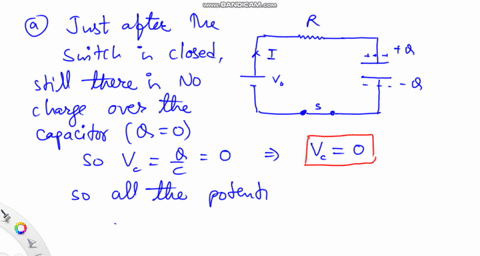 www.BANDICAM.com
(a) Just after the
switch is closed,
still there is NO
charge over the
capacitor (Q=0)
so Vc = Q/C = 0 ⇒ Vc = 0
so all the potenti
R
I
V₀
S
+++ +Q
- - - - Q